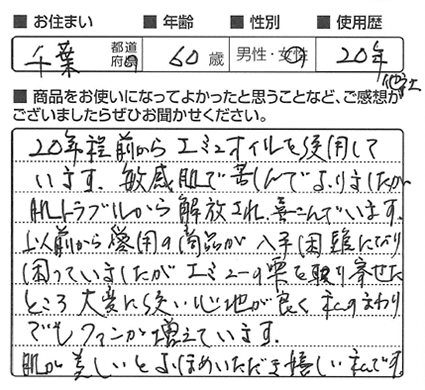 ■ お住まい ■ 年齢 ■ 性別 ■ 使用歴
千葉 都道府県 60歳 男性・女性 20年
■ 商品をお使いになってよかったと思うことなど、ご感想が
ございましたらぜひお聞かせください。
20年程前からエミューオイルを使用して
います。敏感肌で苦しんでおりましたが
肌トラブルから解放され、喜こんでいます。
以前から愛用の商品が入手困難になり
困っていましたがエミューの雫を取り寄せた
ところ大変に使い心地が良く私のまわり
でもファンが増えています。
肌が美しいとよくほめいただき嬉しい私です。